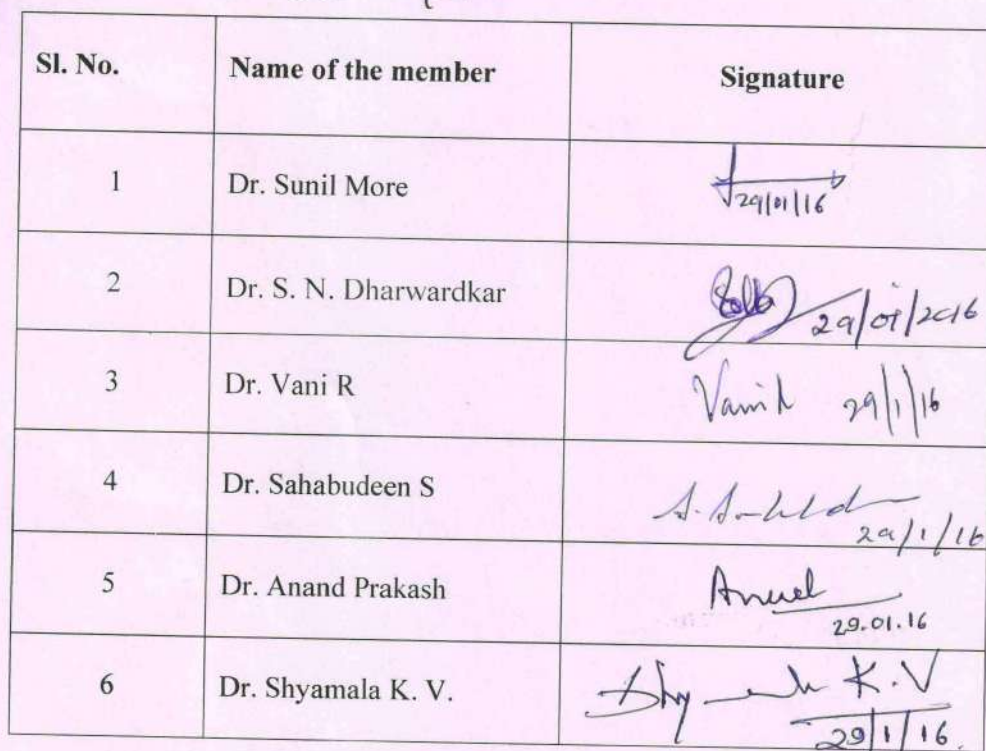 Sl. No. Name of the member Signature
1 Dr. Sunil More 29/01/16
2 Dr. S. N. Dharwardkar 29/01/2016
3 Dr. Vani R Vani R 29/1/16
4 Dr. Sahabudeen S 29/1/16
5 Dr. Anand Prakash 29.01.16
6 Dr. Shyamala K. V. K.V
29/1/16